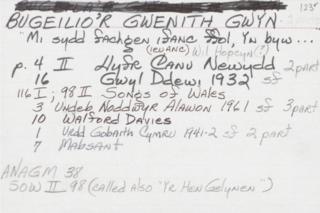 123
BUGEILIO'R GWENITH GWYN
"Mi sydd fachgen ifanc ffol, Yn byw ...
(ieuanc) Wil Hopcyn(?)
p. 4 II Llyfr Canu Newydd 2 part
16 Gwyl Ddewi 1932 sf
116 I; 98 II Songs of Wales
3 Undeb Noddwyr Alawon 1961 sf 3 part
10 Walford Davies
1 Urdd Gobaith Cymru 1941-2 sf 2 part
7 Mabsant
ANAGM 38
SOW II 98 (called also "Yr Hen Gelynen")